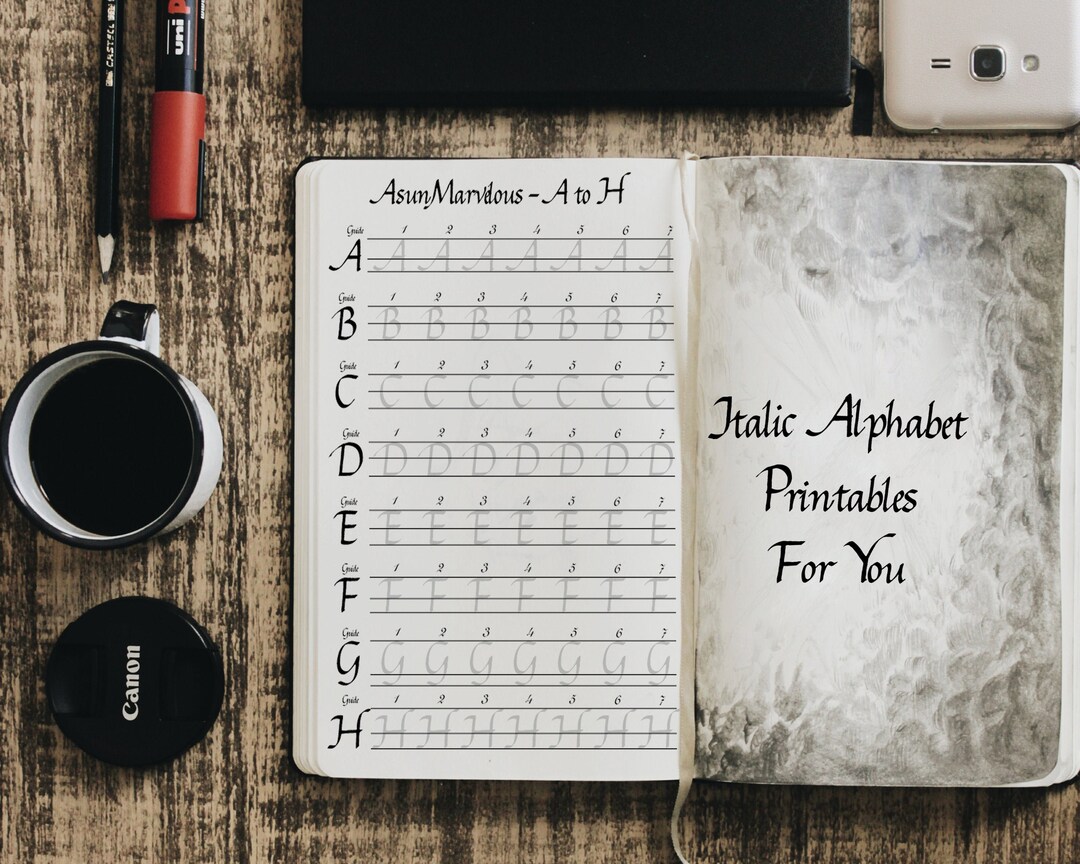 CASTELL
uni P
AsunMarvilous - A to H
Guide 1 2 3 4 5 6 7
A A A A A A A A
Guide 1 2 3 4 5 6 7
B B B B B B B B
Guide 1 2 3 4 5 6 7
C C C C C C C C
Guide 1 2 3 4 5 6 7
D D D D D D D D
Guide 1 2 3 4 5 6 7
E E E E E E E E
Guide 1 2 3 4 5 6 7
F F F F F F F F
Guide 1 2 3 4 5 6 7
G G G G G G G G
Guide 1 2 3 4 5 6 7
H H H H H H H H
Italic Alphabet
Printables
For You
Canon